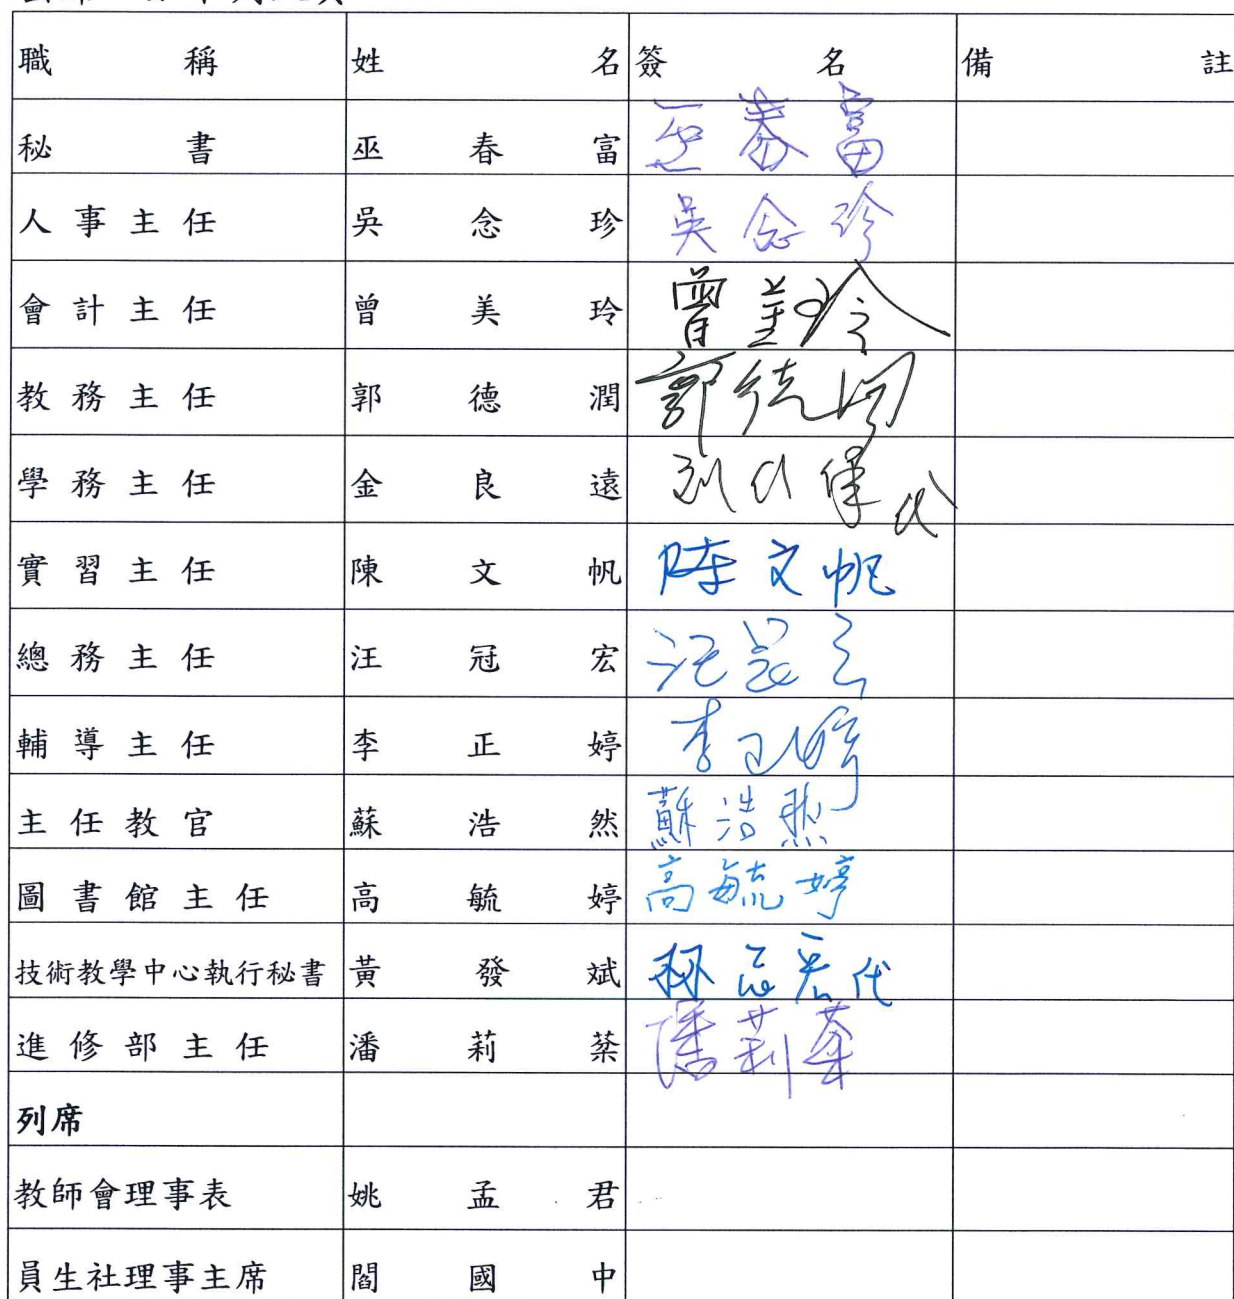 職稱 姓名 簽名 備註
秘書 巫春富 巫春富
人事主任 吳念珍 吳念珍
會計主任 曾美玲 曾美玲
教務主任 郭德潤 郭德潤
學務主任 金良遠 代
實習主任 陳文帆 陳文帆
總務主任 汪冠宏 汪冠宏
輔導主任 李正婷 李正婷
主任教官 蘇浩然 蘇浩然
圖書館主任 高毓婷 高毓婷
技術教學中心執行秘書 黃發斌 代
進修部主任 潘莉棻 潘莉棻
列席
教師會理事表 姚孟君
員生社理事主席 閻國中